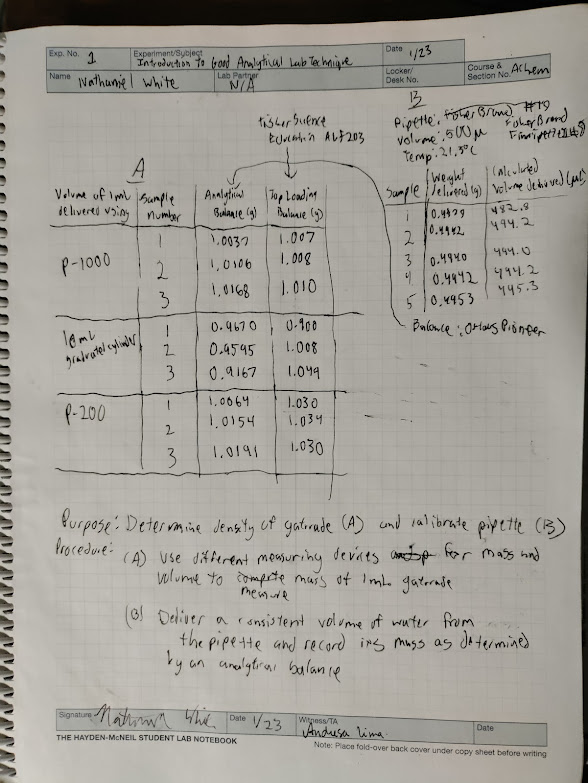 Exp. No. 1 Experiment/Subject Introduction to Good Analytical Lab Technique Date 1/23
Name Nathaniel White Lab Partner N/A Locker/Desk No. Course & Section No. AChem
Fisher Science
Education ALF203
A
Volume of 1mL delivered using Sample Number Analytical Balance (g) Top Loading Balance (g)
P-1000 1 1.0037 1.007
2 1.0106 1.008
3 1.0168 1.010
10mL graduated cylinder 1 0.9670 0.900
2 0.9595 1.008
3 0.9167 1.049
P-200 1 1.0064 1.030
2 1.0154 1.034
3 1.0191 1.030
B
Pipette: Fisher Brand #19
Fisher Brand
Volume: 500 μ
Temp: 21.5°C
Sample Weight delivered (g) Calculated Volume delivered (μL)
1 0.4829 482.8
2 0.4942 494.2
3 0.4940 494.0
4 0.4942 494.2
5 0.4953 495.3
Balance: Ohaus Pioneer
Purpose: Determine density of gatorade (A) and calibrate pipette (B)
Procedure: (A) Use different measuring devices for mass and
volume to compute mass of 1mL gatorade
measure
(B) Deliver a consistent volume of water from
the pipette and record its mass as determined
by an analytical balance
Signature Nathaniel White Date 1/23 Witness/TA Andresa Lima Date
THE HAYDEN-McNEIL STUDENT LAB NOTEBOOK
Note: Place fold-over back cover under copy sheet before writing